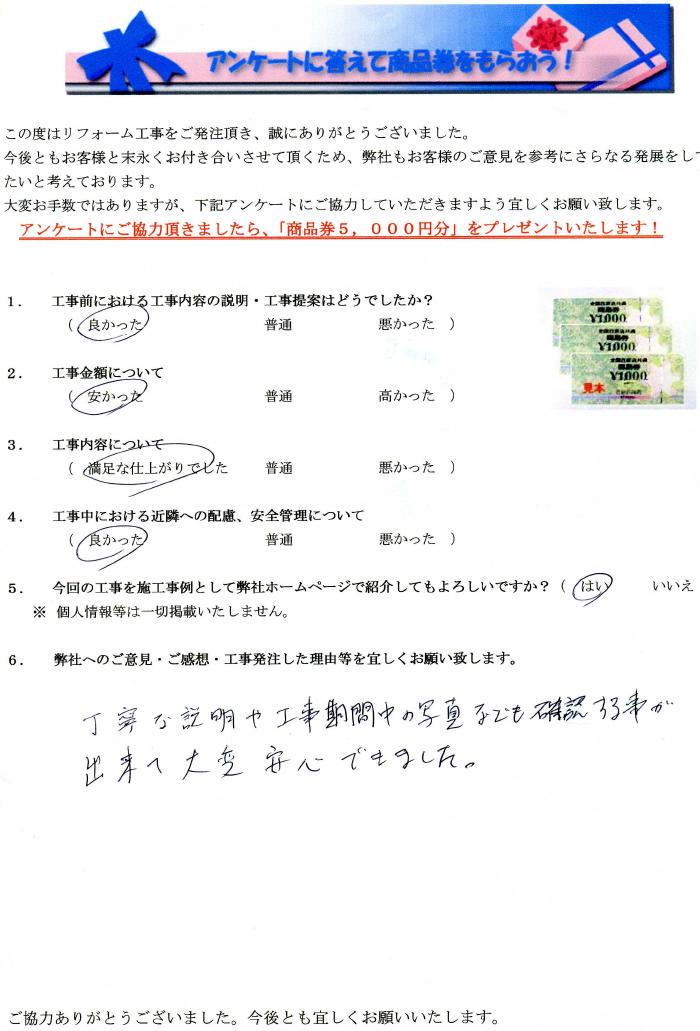 アンケートに答えて商品券をもらおう！
この度はリフォーム工事をご発注頂き、誠にありがとうございました。
今後ともお客様と末永くお付き合いさせて頂くため、弊社もお客様のご意見を参考にさらなる発展をし
たいと考えております。
大変お手数ではありますが、下記アンケートにご協力していただきますよう宜しくお願い致します。
アンケートにご協力頂きましたら、「商品券５，０００円分」をプレゼントいたします！
１．　工事前における工事内容の説明・工事提案はどうでしたか？
（　良かった　普通　悪かった　）
２．　工事金額について
（　安かった　普通　高かった　）
３．　工事内容について
（　満足な仕上がりでした　普通　悪かった　）
４．　工事中における近隣への配慮、安全管理について
（　良かった　普通　悪かった　）
５．　今回の工事を施工事例として弊社ホームページで紹介してもよろしいですか？（　はい　いいえ
※　個人情報等は一切掲載いたしません。
¥1,000
¥1,000
¥1,000
見本
６．　弊社へのご意見・ご感想・工事発注した理由等を宜しくお願い致します。
丁寧な説明や工事期間中の写真などでも確認する事が
出来て大変安心できました。
ご協力ありがとうございました。今後とも宜しくお願いいたします。